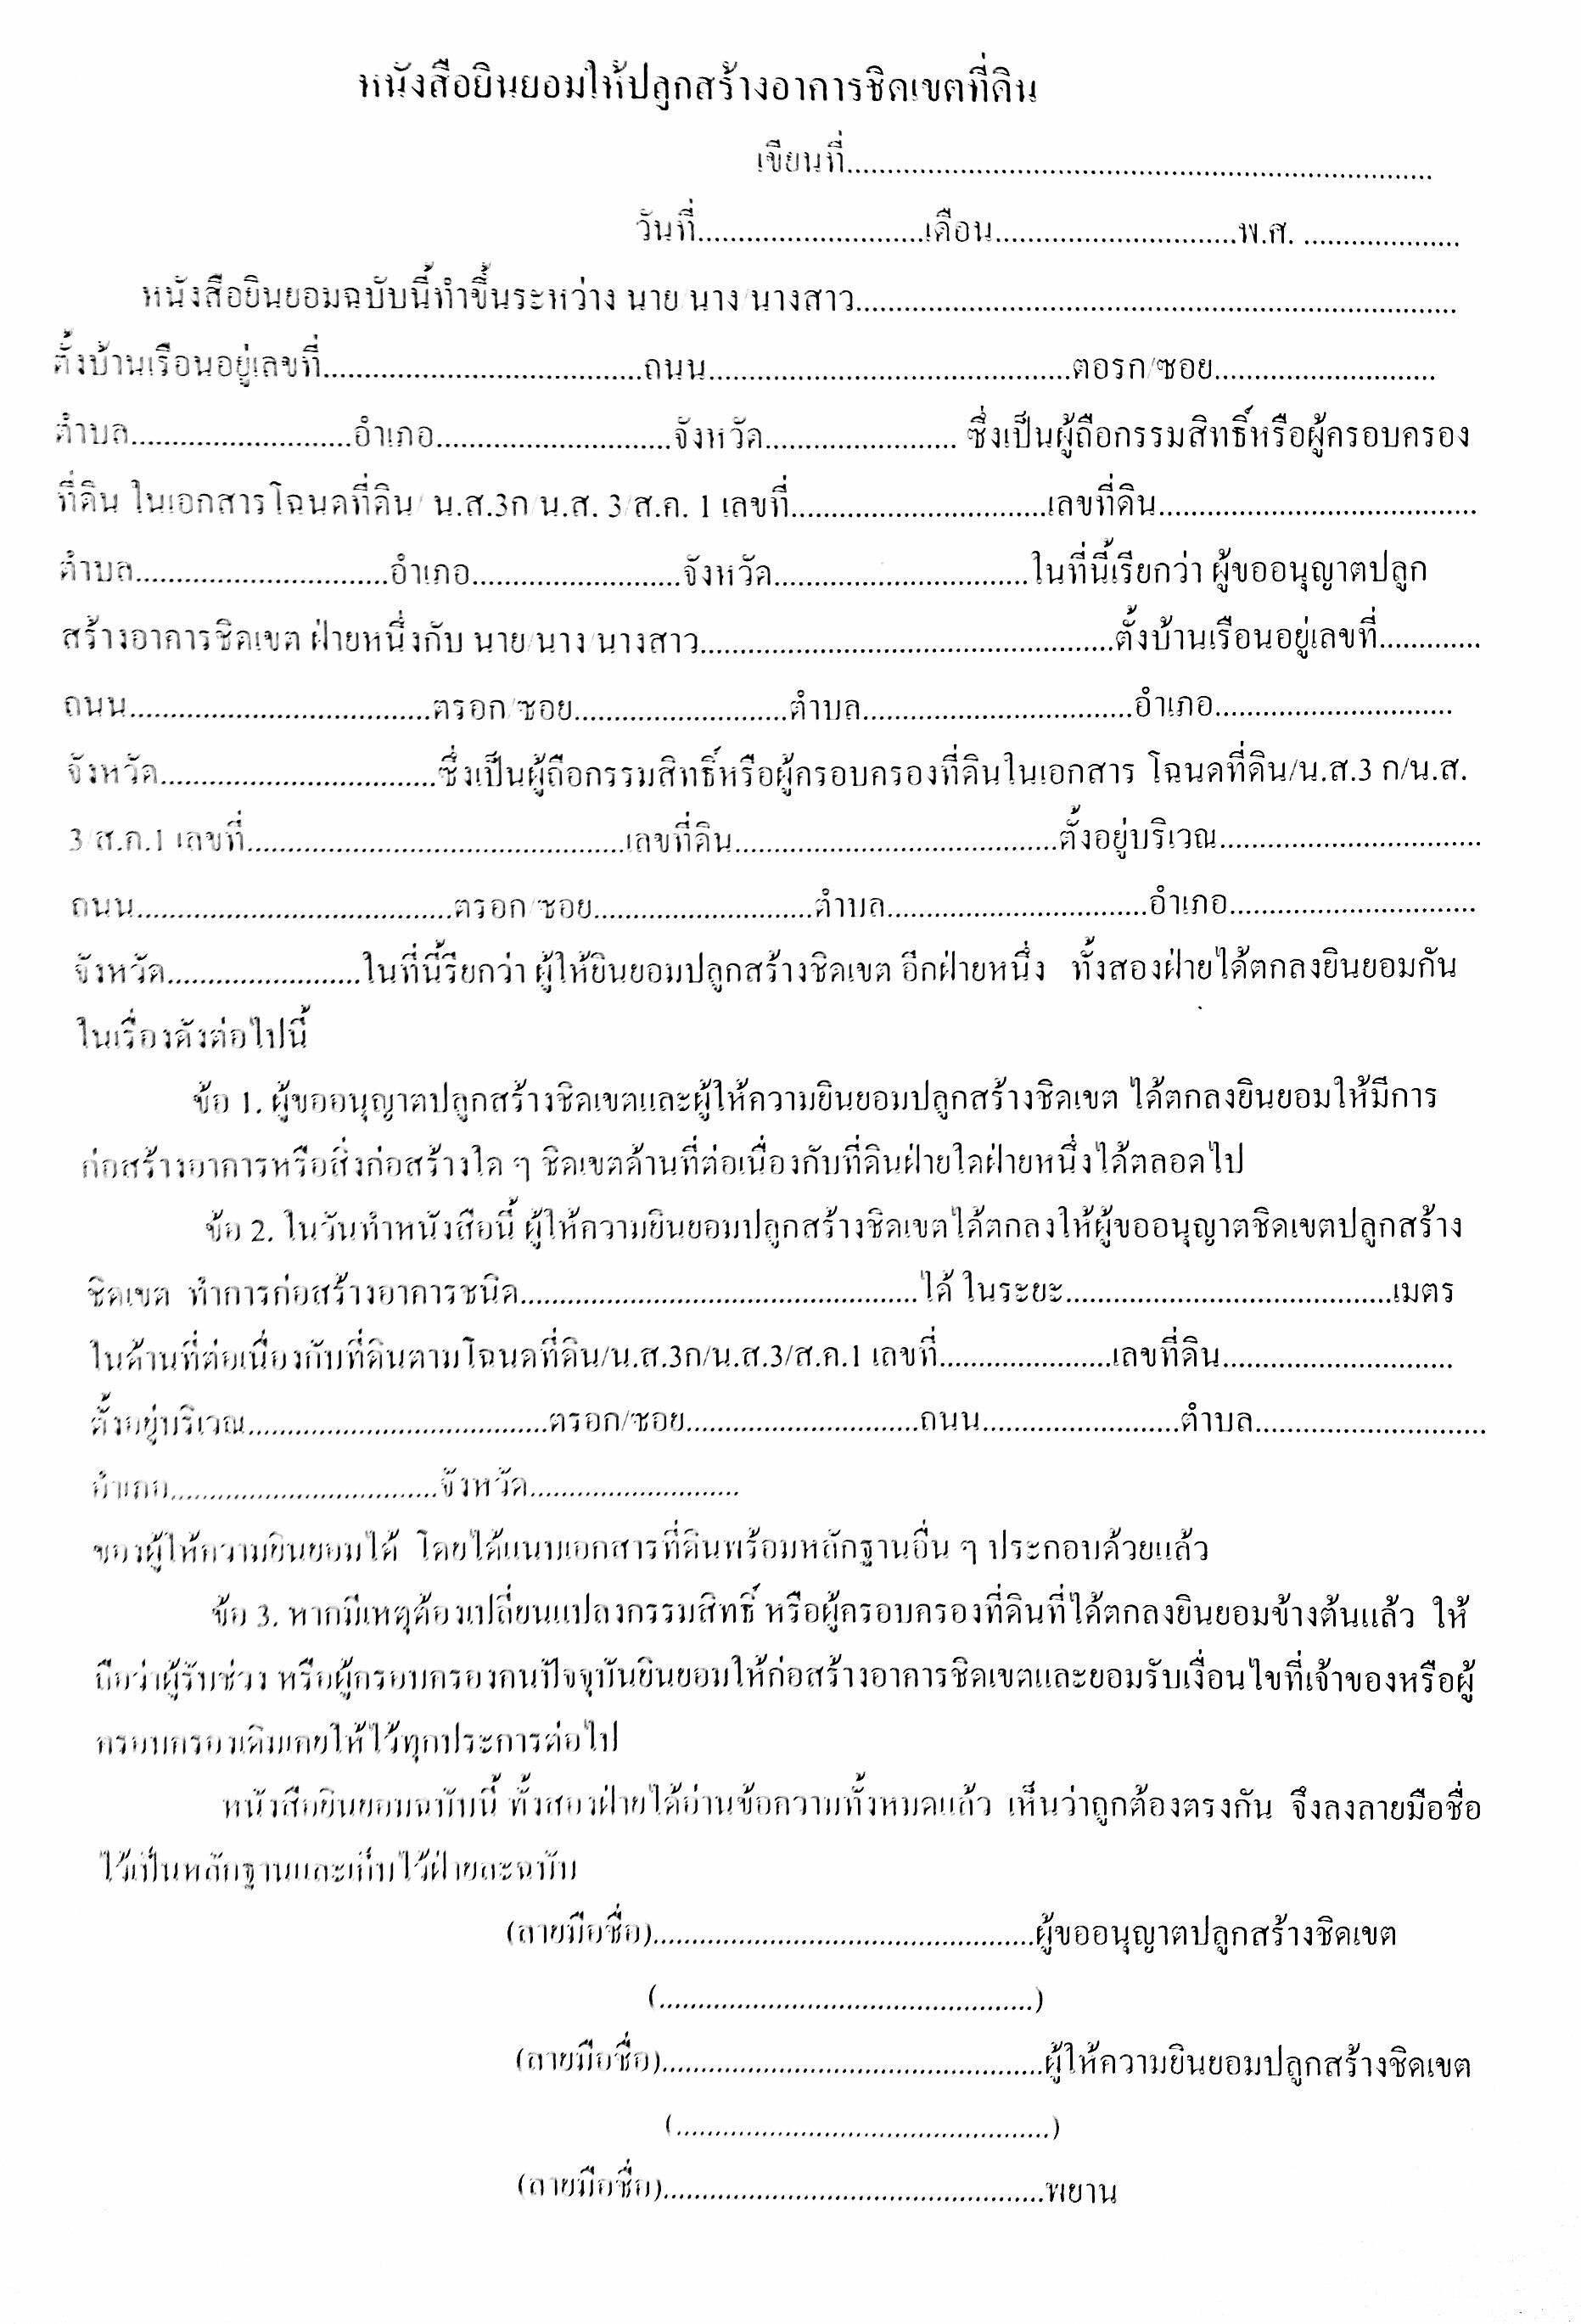 หนังสือยินยอมให้ปลูกสร้างอาคารชิดเขตที่ดิน
เขียนที่........................................................................
วันที่............................เดือน..............................พ.ศ. ...................
หนังสือยินยอมฉบับนี้ทำขึ้นระหว่าง นาย/นาง/นางสาว..........................................................................
ตั้งบ้านเรือนอยู่เลขที่.......................................ถนน.............................................ตอรก/ซอย...........................
ตำบล...........................อำเภอ.............................จังหวัด........................ ซึ่งเป็นผู้ถือกรรมสิทธิ์หรือผู้ครอบครอง
ที่ดิน ในเอกสารโฉนดที่ดิน/ น.ส.3ก/น.ส. 3/ส.ค. 1 เลขที่...............................เลขที่ดิน.......................................
ตำบล...............................อำเภอ..........................จังหวัด...............................ในที่นี้เรียกว่า ผู้ขออนุญาตปลูก
สร้างอาคารชิดเขต ฝ่ายหนึ่งกับ นาย/นาง/นางสาว...................................................ตั้งบ้านเรือนอยู่เลขที่.............
ถนน.....................................ตรอก/ซอย..........................ตำบล.................................อำเภอ.............................
จังหวัด..................................ซึ่งเป็นผู้ถือกรรมสิทธิ์หรือผู้ครอบครองที่ดินในเอกสาร โฉนดที่ดิน/น.ส.3 ก/น.ส.
3/ส.ค.1 เลขที่...............................................เลขที่ดิน........................................ตั้งอยู่บริเวณ................................
ถนน.......................................ตรอก/ซอย...........................ตำบล................................อำเภอ..............................
จังหวัด........................ในที่นี้รียกว่า ผู้ให้ยินยอมปลูกสร้างชิดเขต อีกฝ่ายหนึ่ง ทั้งสองฝ่ายได้ตกลงยินยอมกัน
ในเรื่องดังต่อไปนี้
ข้อ 1. ผู้ขออนุญาตปลูกสร้างชิดเขตและผู้ให้ความยินยอมปลูกสร้างชิดเขต ได้ตกลงยินยอมให้มีการ
ก่อสร้างอาคารหรือสิ่งก่อสร้างใด ๆ ชิดเขตด้านที่ต่อเนื่องกับที่ดินฝ่ายใดฝ่ายหนึ่งได้ตลอดไป
ข้อ 2. ในวันทำหนังสือนี้ ผู้ให้ความยินยอมปลูกสร้างชิดเขตได้ตกลงให้ผู้ขออนุญาตชิดเขตปลูกสร้าง
ชิดเขต ทำการก่อสร้างอาคารชนิด.................................................ได้ ในระยะ........................................เมตร
ในด้านที่ต่อเนื่องกับที่ดินตามโฉนดที่ดิน/น.ส.3ก/น.ส.3/ส.ค.1 เลขที่.....................เลขที่ดิน............................
ตั้งอยู่บริเวณ.....................................ตรอก/ซอย.............................ถนน........................ตำบล............................
อำเภอ.................................จังหวัด..........................
ของผู้ให้ความยินยอมได้ โดยได้แนบเอกสารที่ดินพร้อมหลักฐานอื่น ๆ ประกอบด้วยแล้ว
ข้อ 3. หากมีเหตุต้องเปลี่ยนแปลงกรรมสิทธิ์ หรือผู้ครอบครองที่ดินที่ได้ตกลงยินยอมข้างต้นแล้ว ให้
ถือว่าผู้รับช่วง หรือผู้ครอบครองคนปัจจุบันยินยอมให้ก่อสร้างอาคารชิดเขตและยอมรับเงื่อนไขที่เจ้าของหรือผู้
ครอบครองเดิมเคยให้ไว้ทุกประการต่อไป
หนังสือยินยอมฉบับนี้ ทั้งสองฝ่ายได้อ่านข้อความทั้งหมดแล้ว เห็นว่าถูกต้องตรงกัน จึงลงลายมือชื่อ
ไว้เป็นหลักฐานและเก็บไว้ฝ่ายละฉบับ
(ลายมือชื่อ)................................................ผู้ขออนุญาตปลูกสร้างชิดเขต
(................................................)
(ลายมือชื่อ)................................................ผู้ให้ความยินยอมปลูกสร้างชิดเขต
(................................................)
(ลายมือชื่อ)................................................พยาน